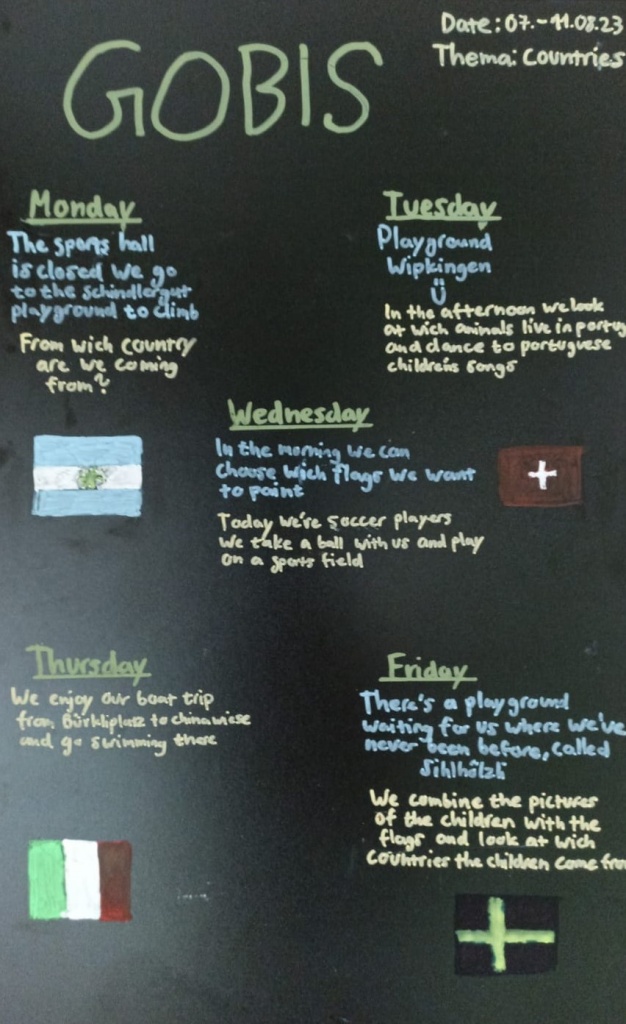 Date: 07.-11.08.23
Thema: Countries
GOBIS
Monday
The sports hall
is closed we go
to the Schindlergut
playground to climb
From wich country
are we coming
from?
Tuesday
Playground
Wipkingen
In the afternoon we look
at wich animals live in portug
and dance to portuguese
childrens songs
Wednesday
In the morning we can
choose wich flags we want
to paint
Today we're soccer players
We take a ball with us and play
on a sports field
Thursday
We enjoy our boat trip
from Bürkliplatz to chinawiese
and go swimming there
Friday
There's a playground
waiting for us where we've
never been before, called
Sihlhölzli
We combine the pictures
of the children with the
flags and look at wich
countries the children come from